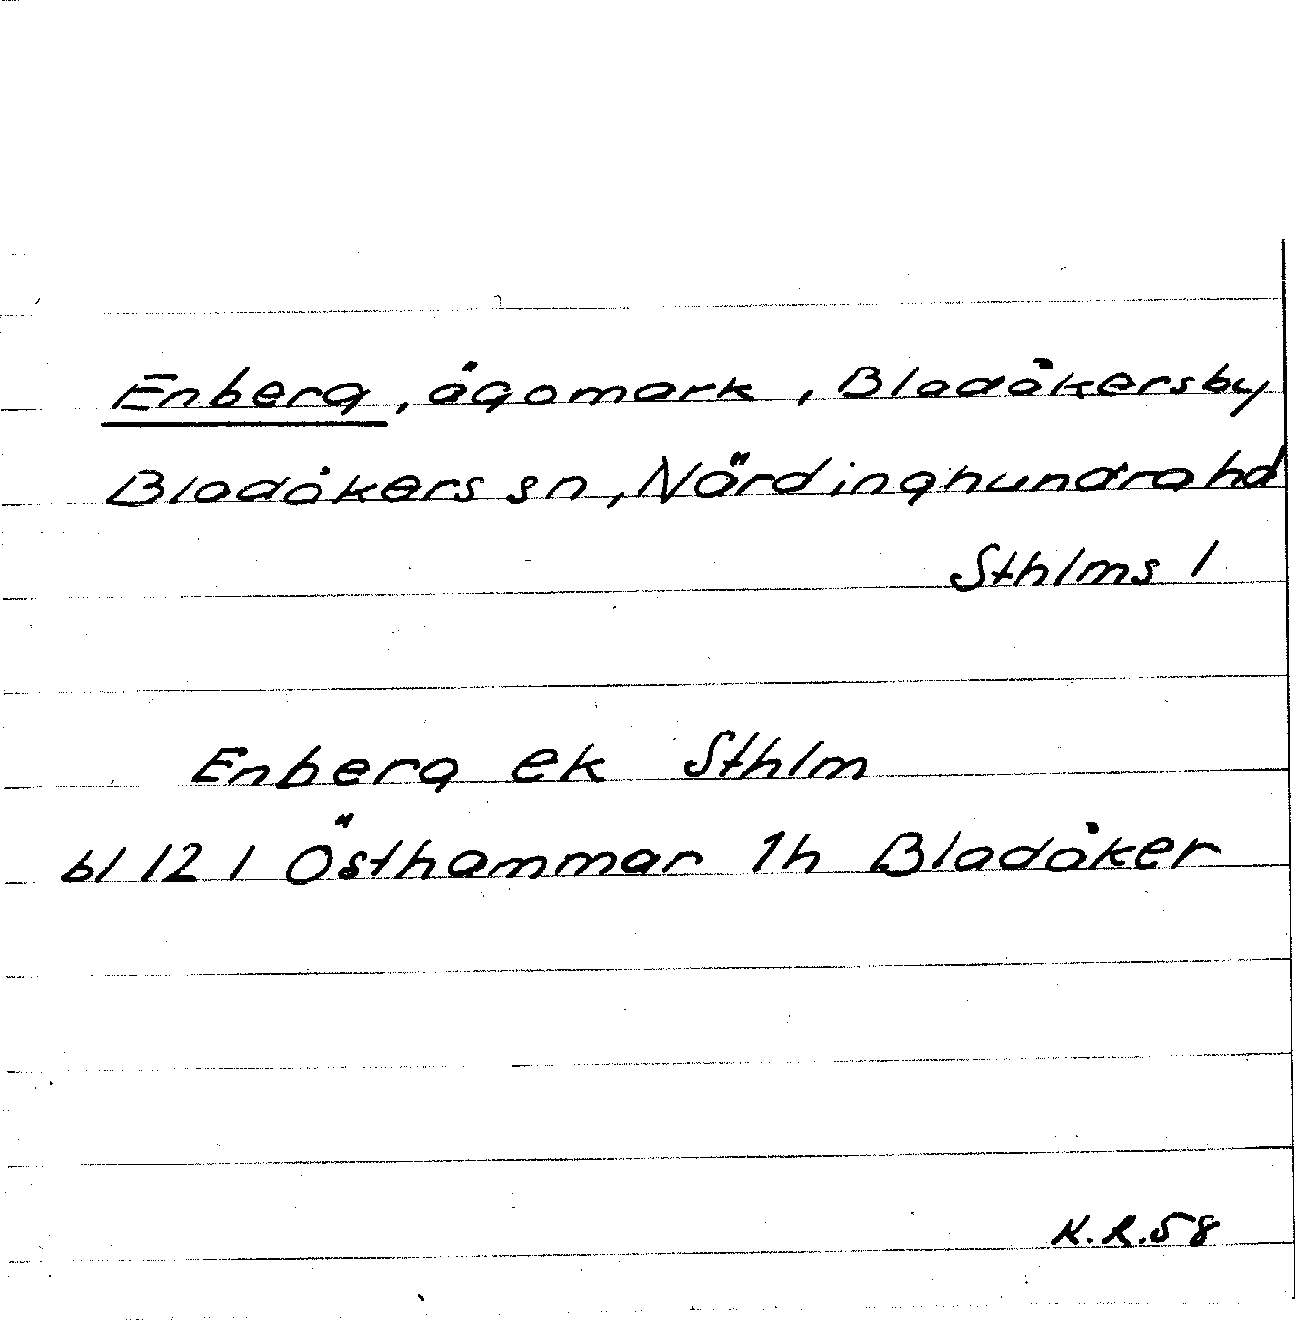 Enberg, ägomark, Bladåkersby
Bladåkers sn, Närdinghundra hd
Sthlms l
Enberg ek Sthlm
bl 121 Östhammar 1h Bladåker
K.R.58